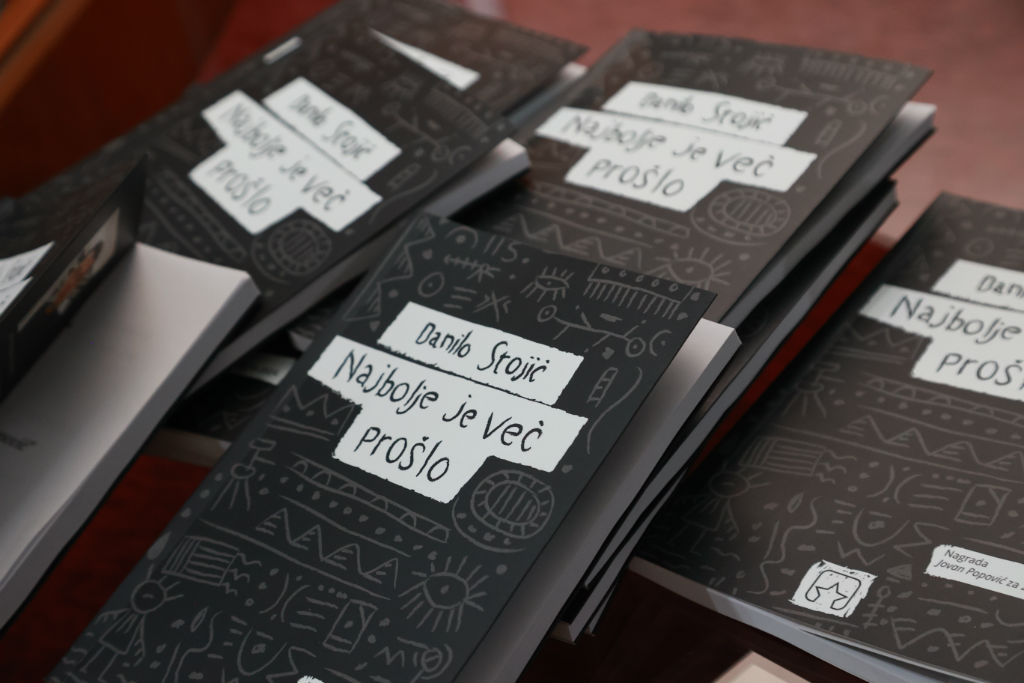 Danilo Stojić
Najbolje je već
prošlo
Danilo Stojić
Najbolje je već
prošlo
Danilo Stojić
Najbolje je već
prošlo
Najbolje
Nagrada
Jovan Popović za